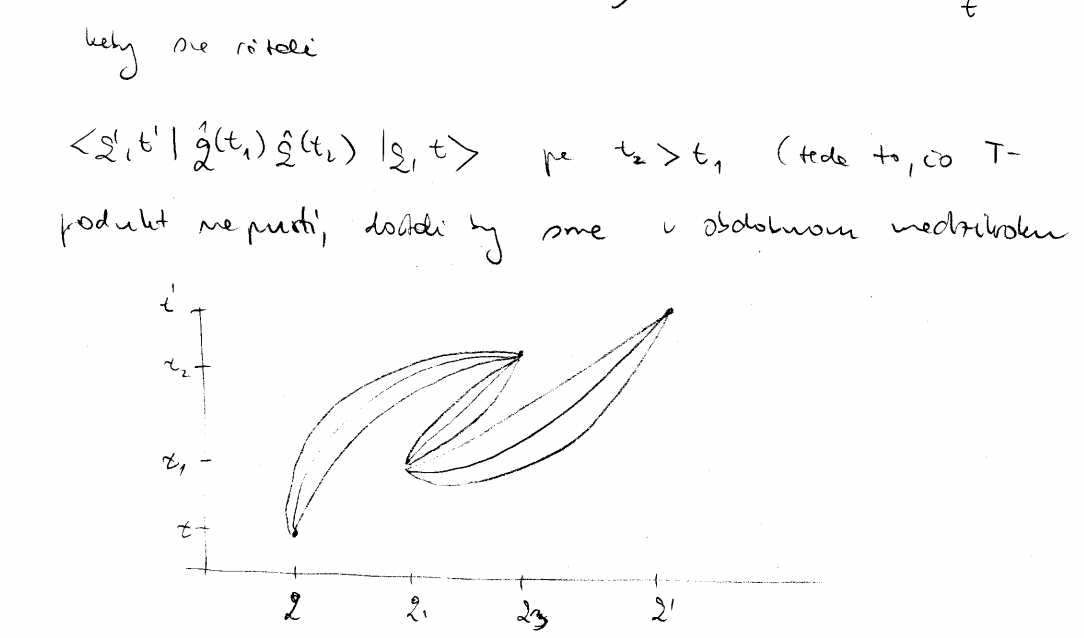 t
keby sme rátali
<q', t' | q̂(t₁) q̂(t₂) | q, t> pre t₂ > t₁ (teda to, čo T-
produkt nepustí, dostali by sme v obdobnom medzikroku
t'
t₂
t₁
t
q q₁ q₂ q'